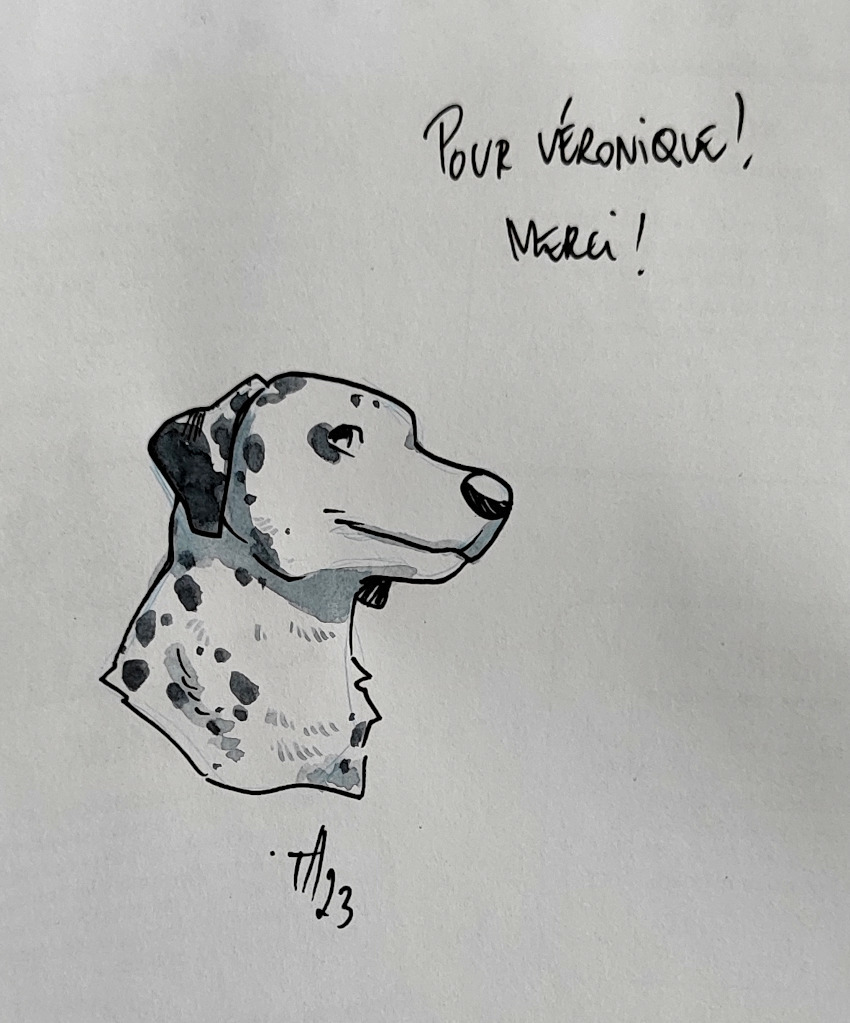 POUR VÉRONIQUE!
MERCI!
TA23